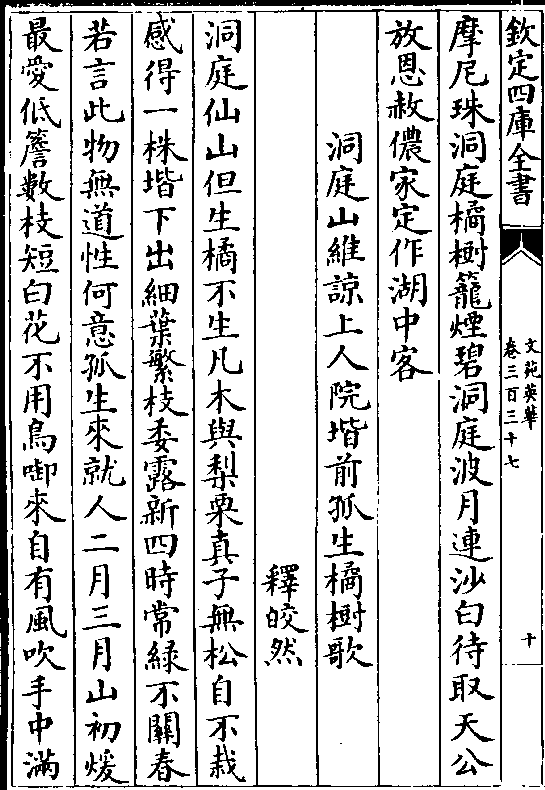 欽定四庫全書
文苑英華
卷三百三十七
十
摩尼珠洞庭橘樹籠煙碧洞庭波月連沙白待取天公
放恩赦儂家定作湖中客
洞庭山維諒上人院堦前孤生橘樹歌
釋皎然
洞庭仙山但生橘不生凡木與梨栗真子無松自不栽
感得一株堦下出細葉繁枝委露新四時常綠不關春
若言此物無道性何意孤生來就人二月三月山初煖
最愛低簷數枝短白花不用鳥啣來自有風吹手中滿